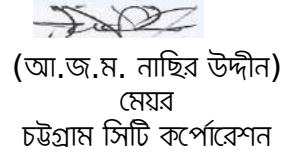 (আ.জ.ম. নাছির উদ্দীন)
মেয়র
চট্টগ্রাম সিটি কর্পোরেশন